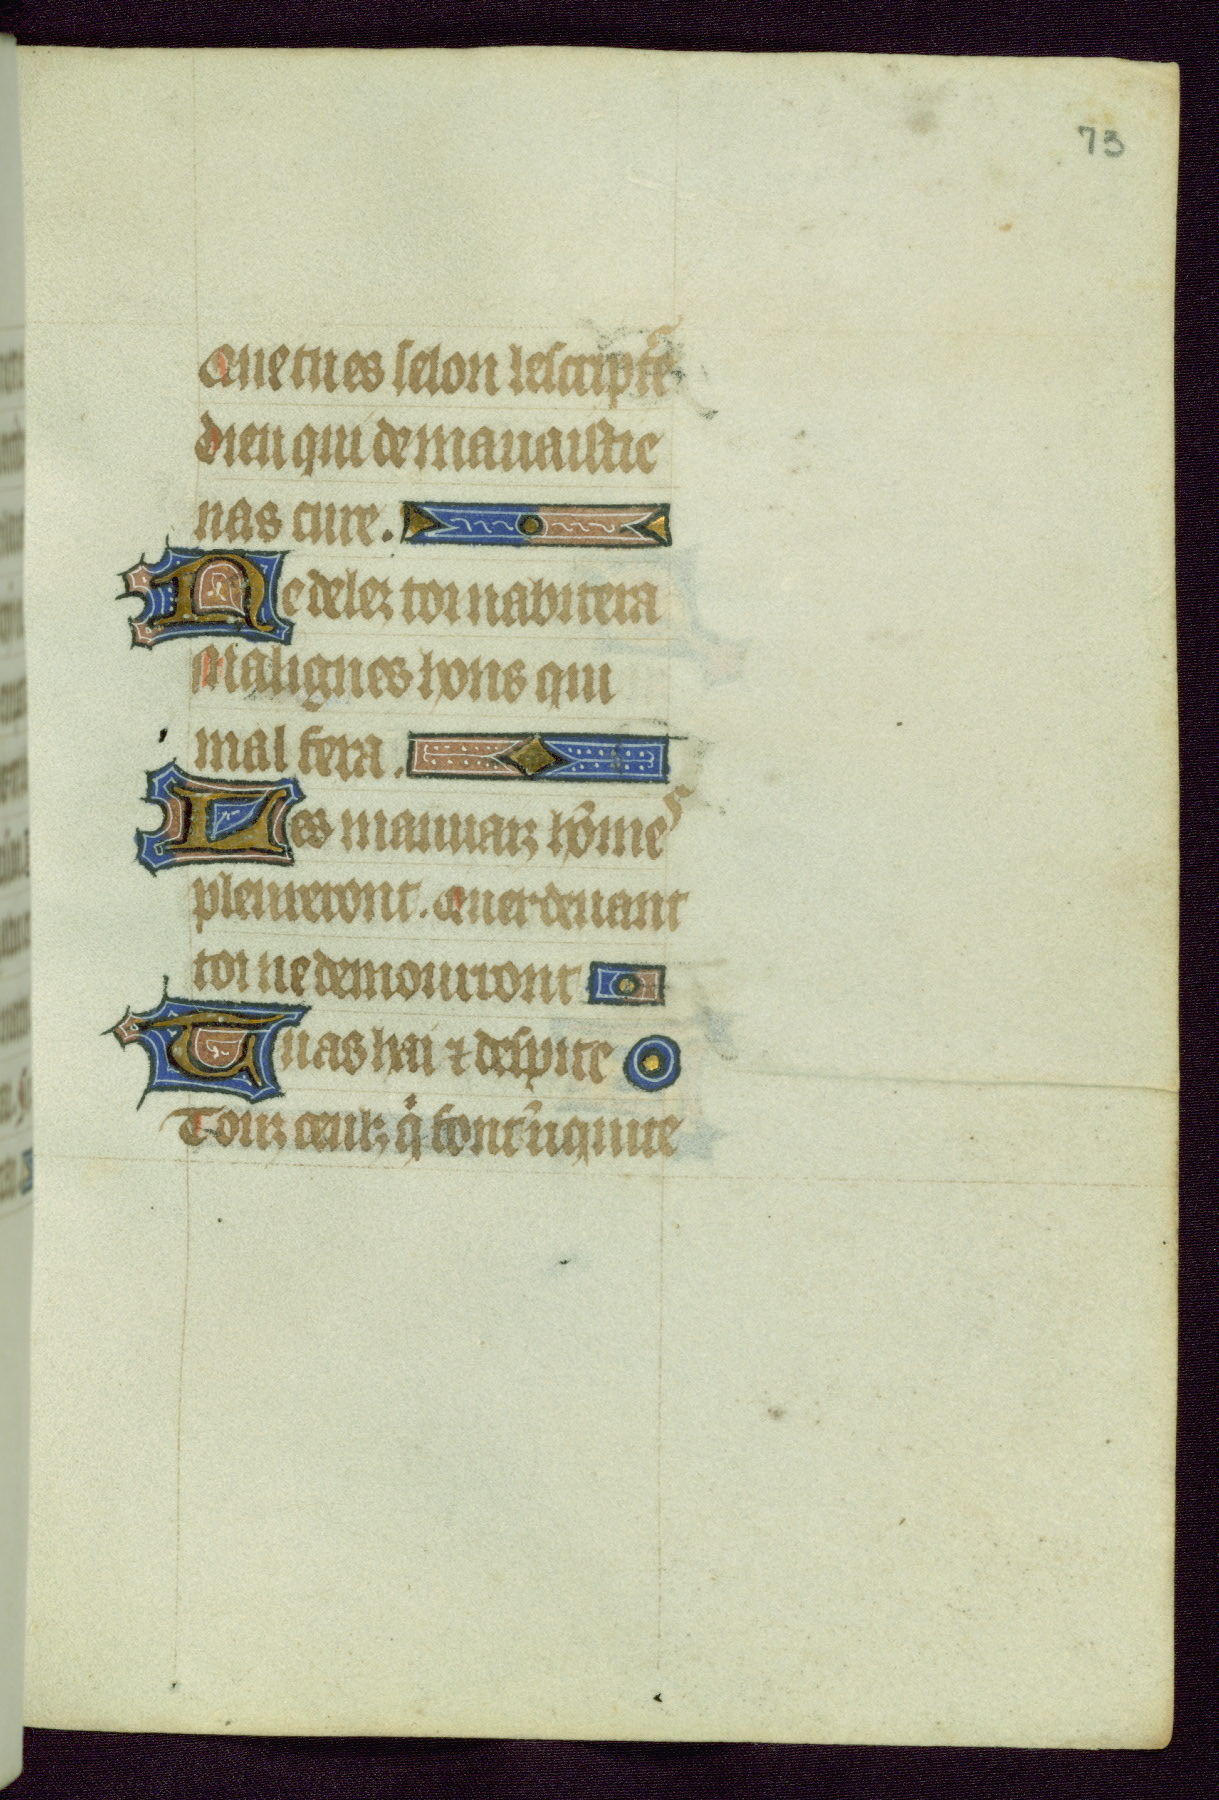 73
Que tu es selon lescript̃e
dieu qui de mauaistie
nas cure.
Ne delez toi nabitera
Malignes hons qui
mal fera.
Les mauuaiz hõmes
pleureront. Quer deuant
toi ne demourront
Tu as hai ⁊ despite
Touz ceulz q̃ font iniquite